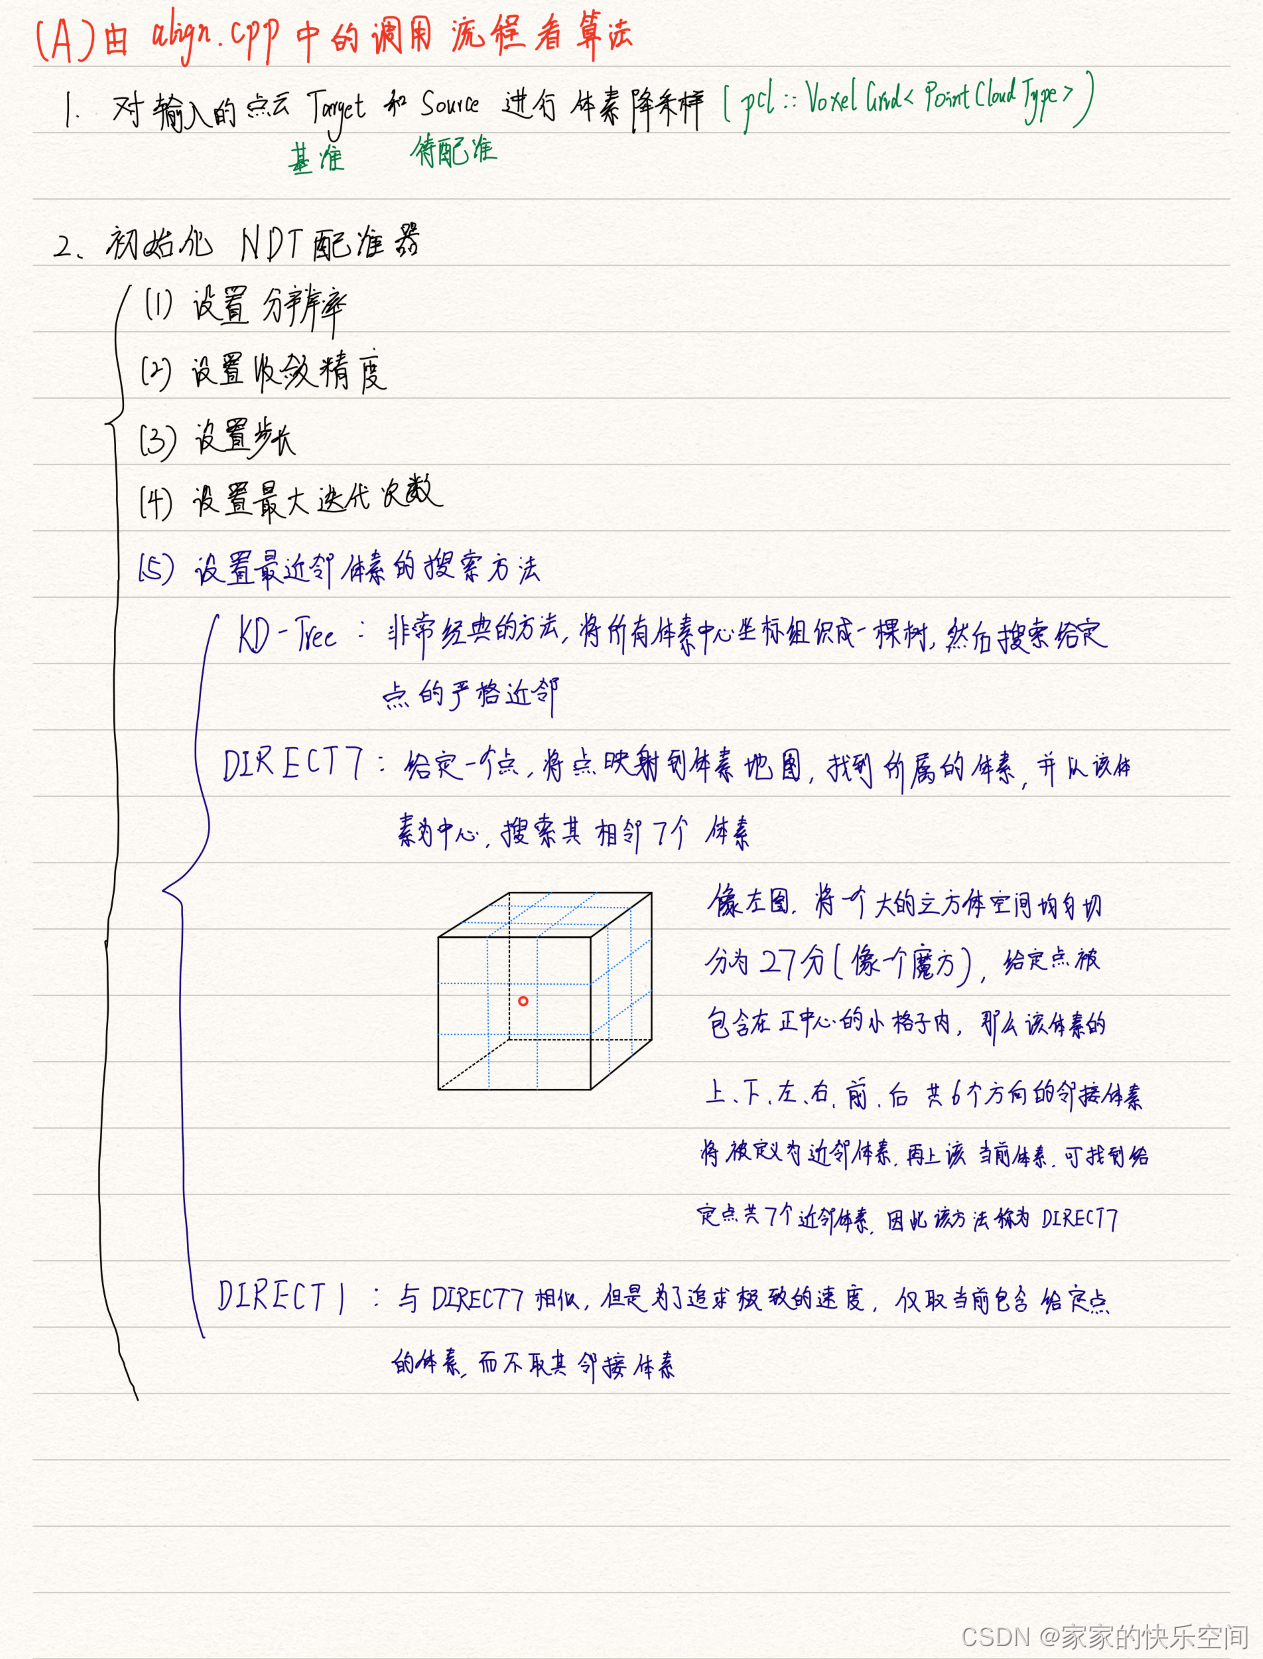 (A)由 align.cpp 中的调用流程看算法
1. 对输入的点云 Target 和 Source 进行体素降采样 (pcl::VoxelGrid<PointCloudType>)
基准 待配准
2、初始化 NDT配准器
(1) 设置分辨率
(2) 设置收敛精度
(3) 设置步长
(4) 设置最大迭代次数
(5) 设置最近邻体素的搜索方法
KD-Tree : 非常经典的方法,将所有体素中心坐标组织成一棵树,然后搜索给定
点的严格近邻
DIRECT7 : 给定一个点,将点映射到体素地图,找到所属的体素,并以该体
素为中心,搜索其相邻7个 体素
像左图,将一个大的立方体空间均匀切
分为27分(像一个魔方),给定点被
包含在正中心的小格子内,那么该体素的
上、下、左、右、前、后 共6个方向的邻接体素
将被定义为近邻体素,再上该当前体素,可找到给
定点共7个近邻体素,因此该方法称为 DIRECT7
DIRECT1 : 与DIRECT7相似,但是为了追求极致的速度,仅取当前包含给定点
的体素,而不取其邻接体素
CSDN @家家的快乐空间